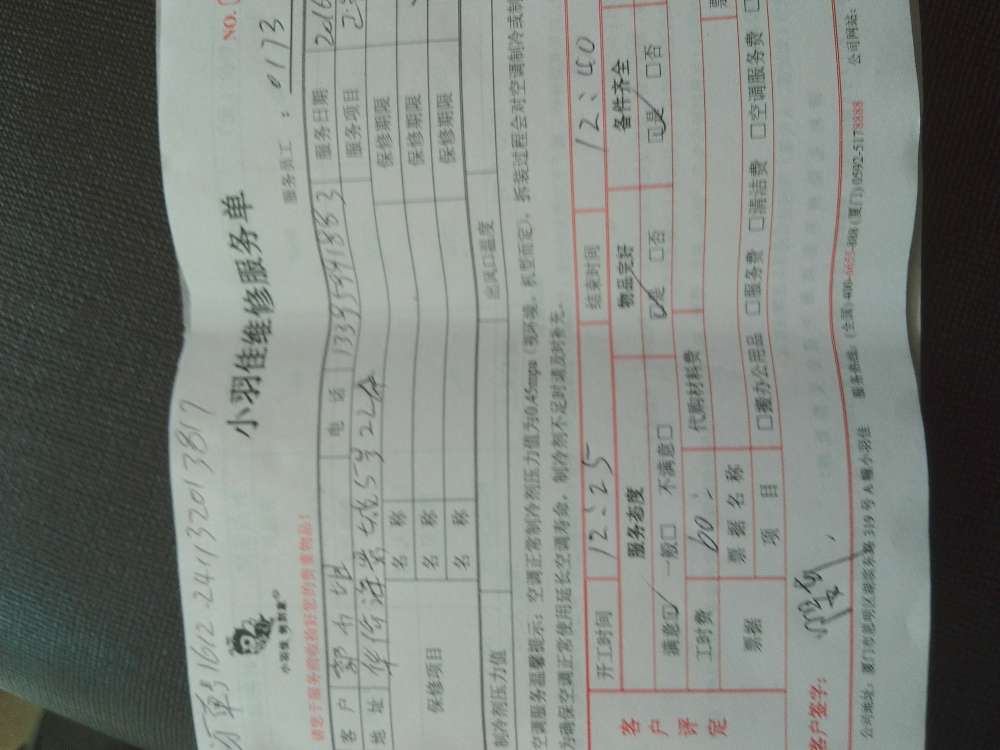 单号1612-2411332013817
小羽佳维修服务单
NO.
小羽佳 ®
服务员工：0173
请您于服务前收捡好您的贵重物品！
客户 电话 13395941883 服务日期 2016
地址 服务项目
保修项目 名称 保修期限
名称 保修期限
名称 保修期限
制冷剂压力值 出风口温度
空调服务温馨提示：空调正常制冷剂压力值为0.45mpa（视环境、机型而定），拆装过程会对空调制冷或制
为确保空调正常使用延长空调寿命，制冷剂不足时请及时补充。
客户评定
开工时间 12:25 结束时间 12:40
服务态度 物品完好 备件齐全
满意☑ 一般□ 不满意□ ☑是 □否 ☑是 □否
工时费 60 代购材料费 票
票据 票据名称
项目 □搬办公用品 □服务费 □清洁费 □空调服务费
客户签字：
公司地址：厦门市思明区湖滨东路319号A幢小羽佳 服务热线：(全国)400-6655-888 (厦门)0592-5178888 公司网站：